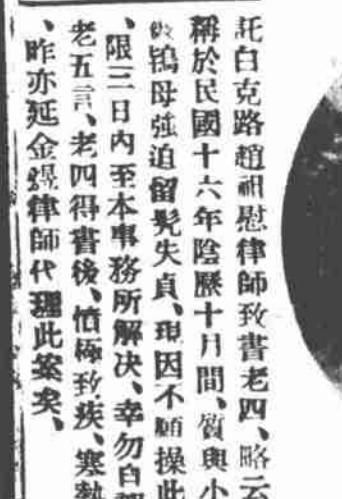 託白克路趙祖慰律師致書老四、略云
稱於民國十六年陰歷十月間、質與小
做鴇母強迫留髡失貞、現因不願操此
、限三日內至本事務所解决、幸勿自
老五言、老四得書後、憤極致疾、寒熱
、昨亦延金煜律師代理此案矣、